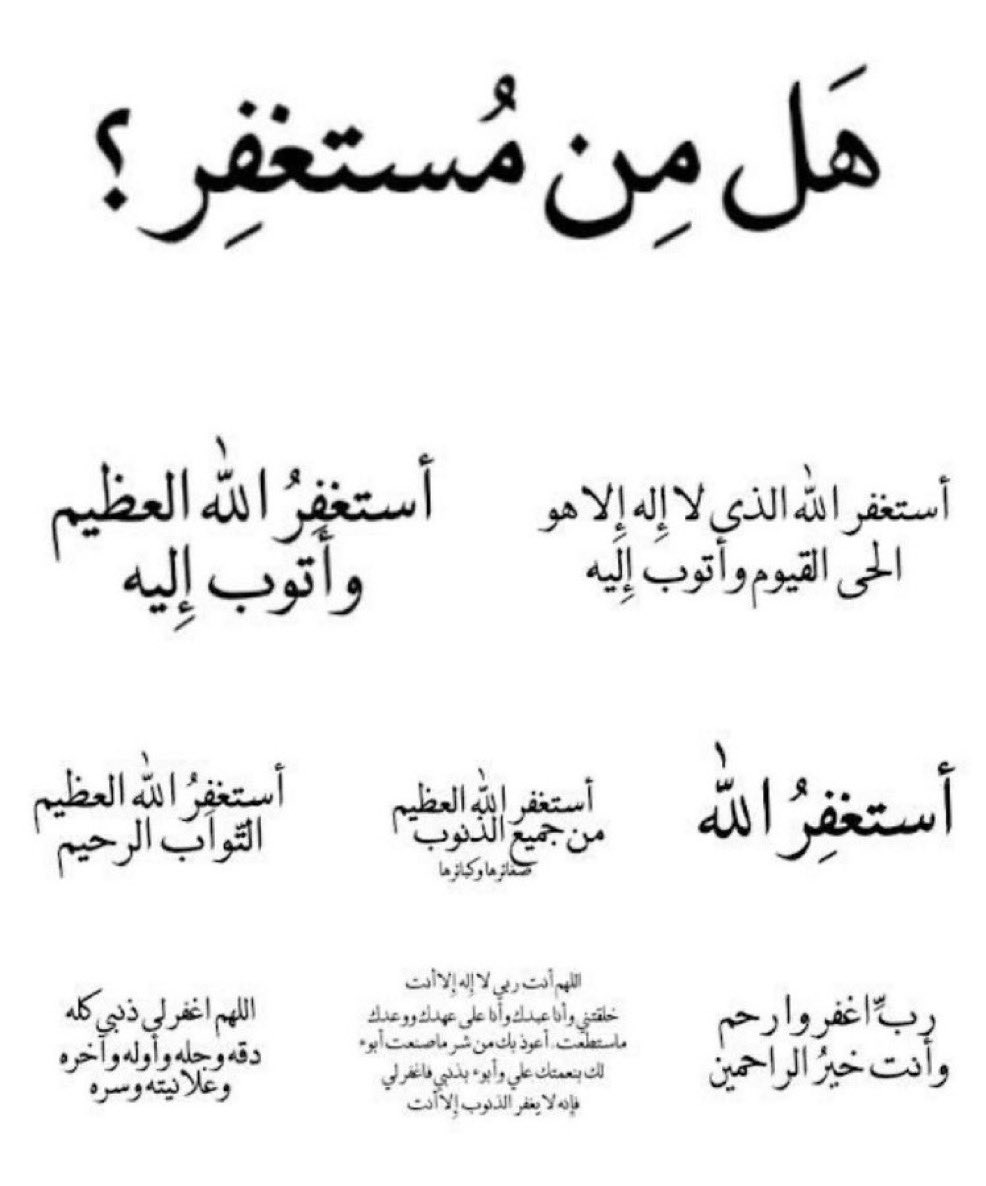 هَل مِن مُستغفِر ؟
أستغفر الله الذى لا إله إلا هو
الحى القيوم وأتوب إليه
أستغفِرُ الله العظيم
وأتوب إليه
أستغفِرُ الله
أستغفر الله العظيم
من جميع الذنوب
صغائرها وكبائرها
أستغفِرُ الله العظيم
التّواب الرحيم
ربِّ اغفر وارحم
وأنت خيرُ الراحمين
اللهم أنت ربي لا إله إلا أنت
خلقتني وأنا عبدك وأنا على عهدك ووعدك
ماستطعت. أعوذ بك من شر ماصنعت أبوء
لك بنعمتك علي وأبوء بذنبي فاغفر لي
فإنه لا يغفر الذنوب إلا أنت
اللهم اغفر لي ذنبي كله
دقه وجله وأوله وآخره
وعلانيته وسره